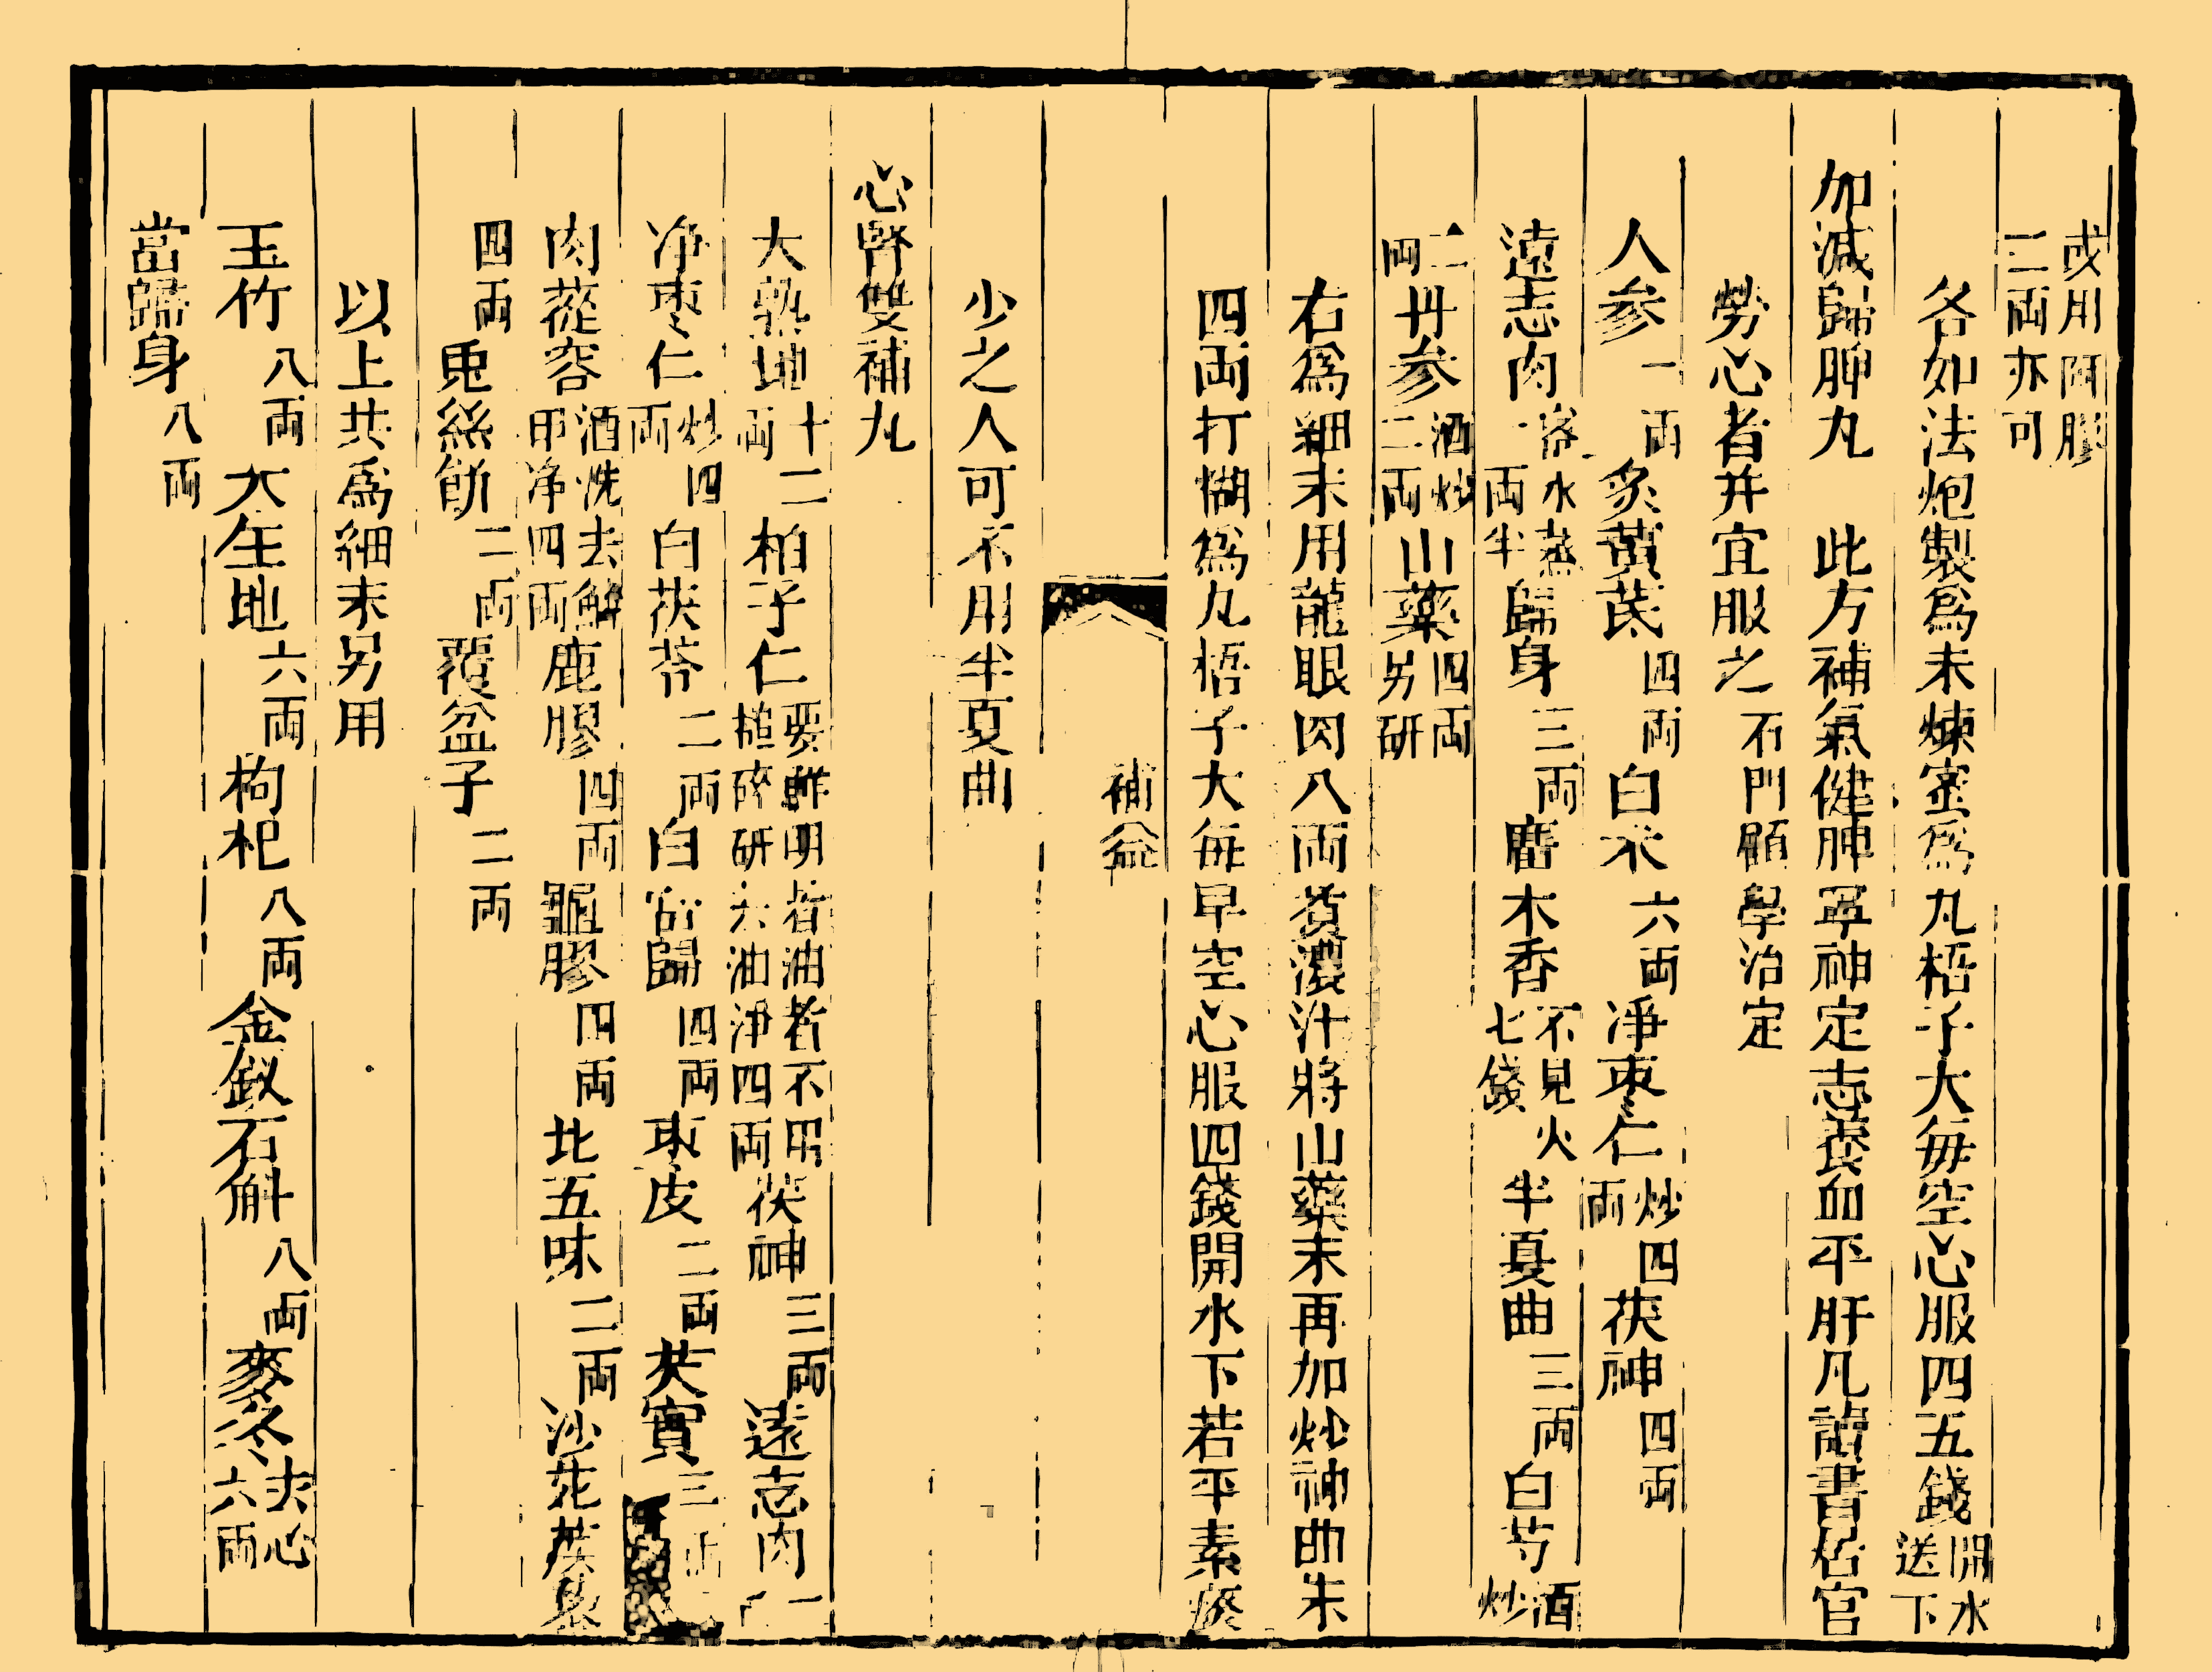 或用阿膠二両亦可
各如法炮製爲末煉蜜爲丸梧子大每空心服四五錢開水送下
加減歸脾丸　此方補氣健脾寧神定志養血平肝凡讀書居官
勞心者并宜服之石門顧學治定
人参一両炙黃芪四両白朮六両净枣仁炒四両茯神四両
遠志肉米水蒸一両半歸身三両廣木香不見火七錢半夏曲三両白芍酒炒
二両丹参酒炒二両山藥四両另研
右爲細末用龍眼肉八両煑濃汁將山藥末再加炒神曲末
四両打糊爲丸梧子大每早空心服四錢開水下若平素痰
補益
少之人可不用半夏曲
心腎雙補丸
大熟地十二両柏子仁要鮮明者油者不用槌碎研去油净四両茯神三両遠志肉一
净枣仁炒四両白茯苓二両白當歸四両取皮二両芡實三
肉蓯容酒洗去鱗甲净四両鹿膠四両龜膠四両北五味二両沙苑蒺藜
四両兎絲餅二両覆盆子二両
以上共爲細末另用
玉竹八両大生地六両枸杞八両金釵石斛八両麥冬去心六両
當歸身八両